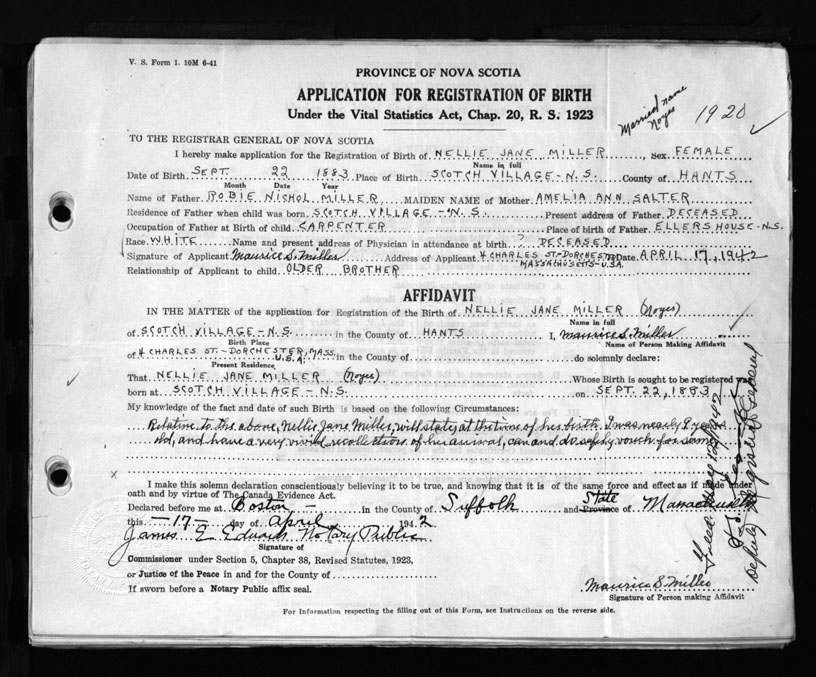 V. S. Form 1. 10M 6-41
PROVINCE OF NOVA SCOTIA
APPLICATION FOR REGISTRATION OF BIRTH
Under the Vital Statistics Act, Chap. 20, R. S. 1923
Married name
Noyes
1920
TO THE REGISTRAR GENERAL OF NOVA SCOTIA
I hereby make application for the Registration of Birth of NELLIE JANE MILLER, Sex FEMALE
Name in full
Date of Birth SEPT. 22 1883 Place of Birth SCOTCH VILLAGE - N.S. County of HANTS
Month Date Year
Name of Father ROBIE NICHOL MILLER MAIDEN NAME of Mother AMELIA ANN SALTER
Residence of Father when child was born SCOTCH VILLAGE - N.S. Present address of Father DECEASED
Occupation of Father at Birth of child CARPENTER Place of birth of Father ELLERSHOUSE - N.S.
Race WHITE Name and present address of Physician in attendance at birth ? DECEASED
Signature of Applicant Maurice S. Miller Address of Applicant 4 CHARLES ST - DORCHESTER Date APRIL 17, 1942
MASSACHUSETTS - U.S.A.
Relationship of Applicant to child OLDER BROTHER
AFFIDAVIT
IN THE MATTER of the application for Registration of the Birth of NELLIE JANE MILLER (Noyes)
Name in full
of SCOTCH VILLAGE - N.S. in the County of HANTS I, Maurice S. Miller
Birth Place Name of Person Making Affidavit
of 4 CHARLES ST. - DORCHESTER, MASS. U.S.A. in the County of do solemnly declare:
Present Residence
That NELLIE JANE MILLER (Noyes) Whose Birth is sought to be registered was
born at SCOTCH VILLAGE - N.S. on SEPT. 22, 1883
My knowledge of the fact and date of such Birth is based on the following Circumstances:
Relative to the above, Nellie Jane Miller, will state, at the time of his birth I was nearly 8 years
old, and have a very vivid recollections of his arrival, can and do safely vouch for same
I make this solemn declaration conscientiously believing it to be true, and knowing that it is of the same force and effect as if made under
oath and by virtue of The Canada Evidence Act.
Declared before me at Boston in the County of Suffolk and Province of State Massachusetts
this 17 day of April 1942
James E Edwards Notary Public
Signature of
Commissioner under Section 5, Chapter 38, Revised Statutes, 1923,
or Justice of the Peace in and for the County of
If sworn before a Notary Public affix seal.
Maurice S. Miller
Signature of Person making Affidavit
For Information respecting the filling out of this Form, see Instructions on the reverse side.
Deputy Registrar General